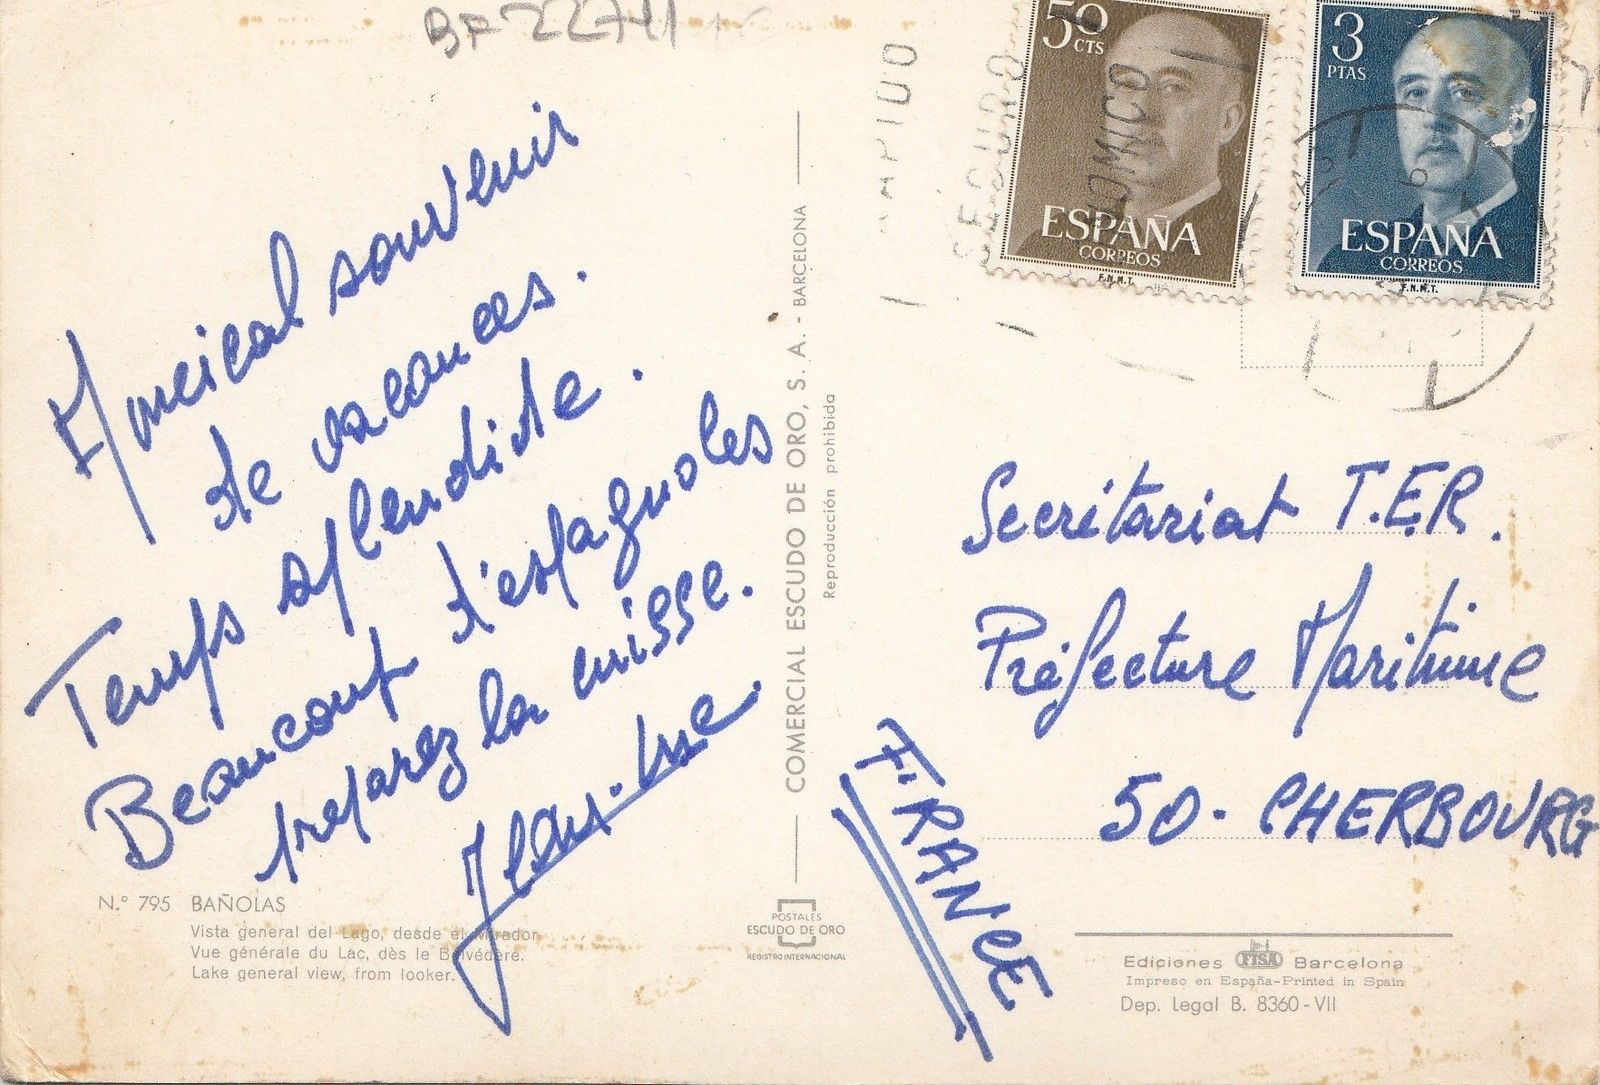 BF 22711
Amical souvenir
de vacances.
Temps splendide.
Beaucoup d'espagnoles
preparez la misse.
Jean-Luc
N.º 795 BAÑOLAS
Vista general del Lago, desde el Mirador.
Vue générale du Lac, dès le Belvédère.
Lake general view, from looker.
COMERCIAL ESCUDO DE ORO, S. A. - BARCELONA
Reproducción prohibida
POSTALES
ESCUDO DE ORO
REGISTRO INTERNACIONAL
SEGURO
50 CTS
ESPAÑA
CORREOS
F.N.M.T.
3 PTAS
ESPAÑA
CORREOS
F.N.M.T.
Secrétariat T.E.R.
Préfecture Maritime
50 - CHERBOURG
FRANCE
Ediciones FISA Barcelona
Impreso en España-Printed in Spain
Dep. Legal B. 8360-VII